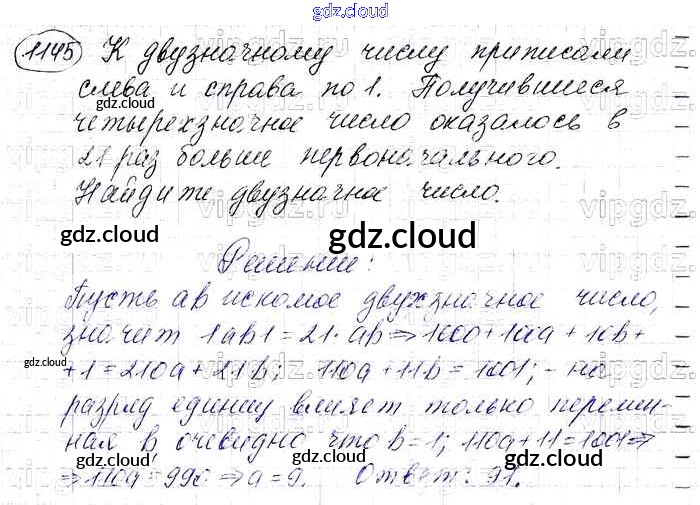 gdz.cloud
1145 К двузначному числу приписали
слева и справа по 1. Получившиеся
четырехзначное число оказалось в
21 раз больше первоначального.
Найдите двузначное число.
gdz.cloud
Решение:
Пусть ав искомое двухзначное число,
значит 1ав1 = 21 · ав ⇒ 1000 + 100а + 10в +
+ 1 = 210а + 21в; 110а + 11в = 1001; - на
разряд единиц влияет только перемен-
ная в, очевидно что в = 1; 110а + 11 = 1001 ⇒
⇒ 110а = 990 ⇒ а = 9. Ответ: 91.